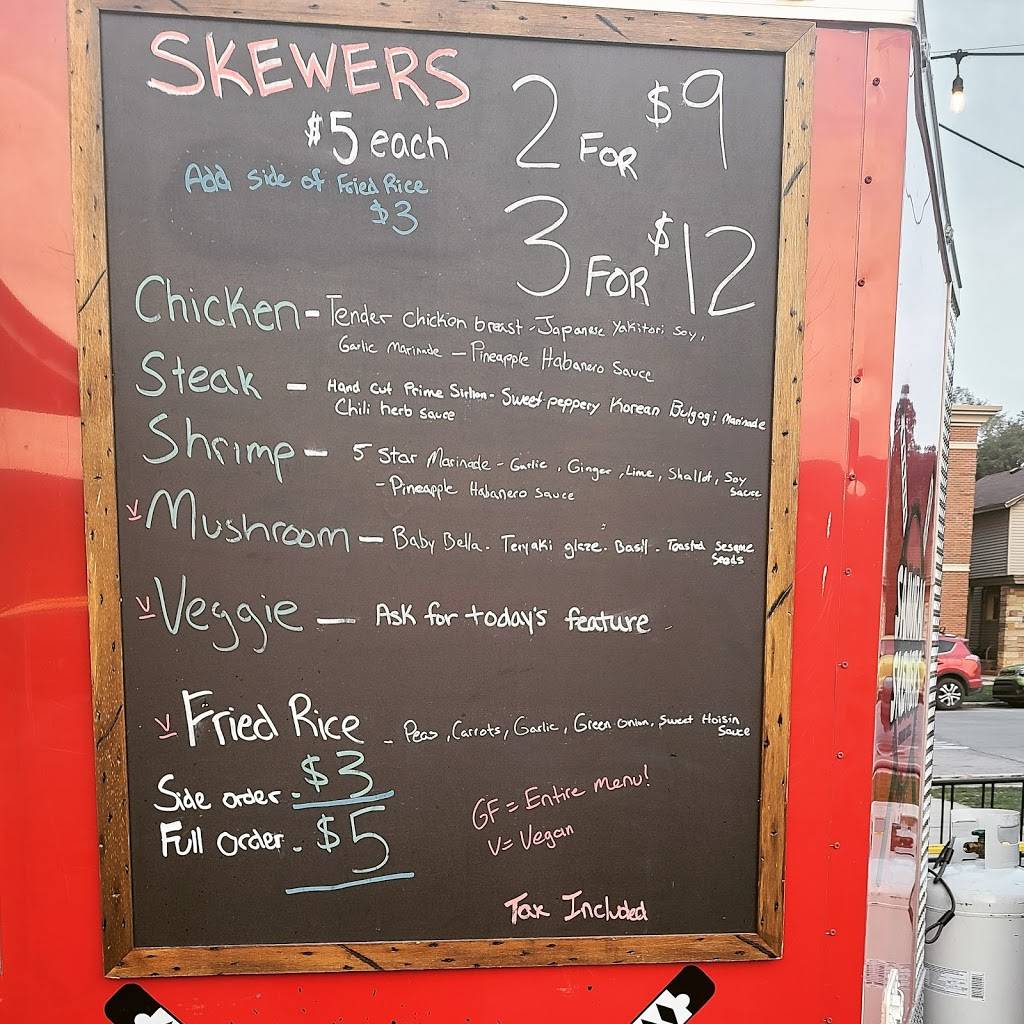 SKEWERS
$5 each
Add side of Fried Rice
$3
2 FOR $9
3 FOR $12
Chicken - Tender chicken breast - Japanese Yakitori Soy,
Garlic Marinade - Pineapple Habanero Sauce
Steak - Hand Cut Prime Sirlion - Sweet peppery Korean Bulgogi Marinade
Chili herb sauce
Shrimp - 5 Star Marinade - Garlic, Ginger, Lime, Shallot, Soy Sauce
- Pineapple Habanero Sauce
V Mushroom - Baby Bella - Teryaki glaze - Basil - Toasted Sesame
Seeds
V Veggie - Ask for today's feature
V Fried Rice - Peas, Carrots, Garlic, Green Onion, Sweet Hoisin
Sauce
Side order - $3
Full Order - $5
GF = Entire menu!
V = Vegan
Tax Included